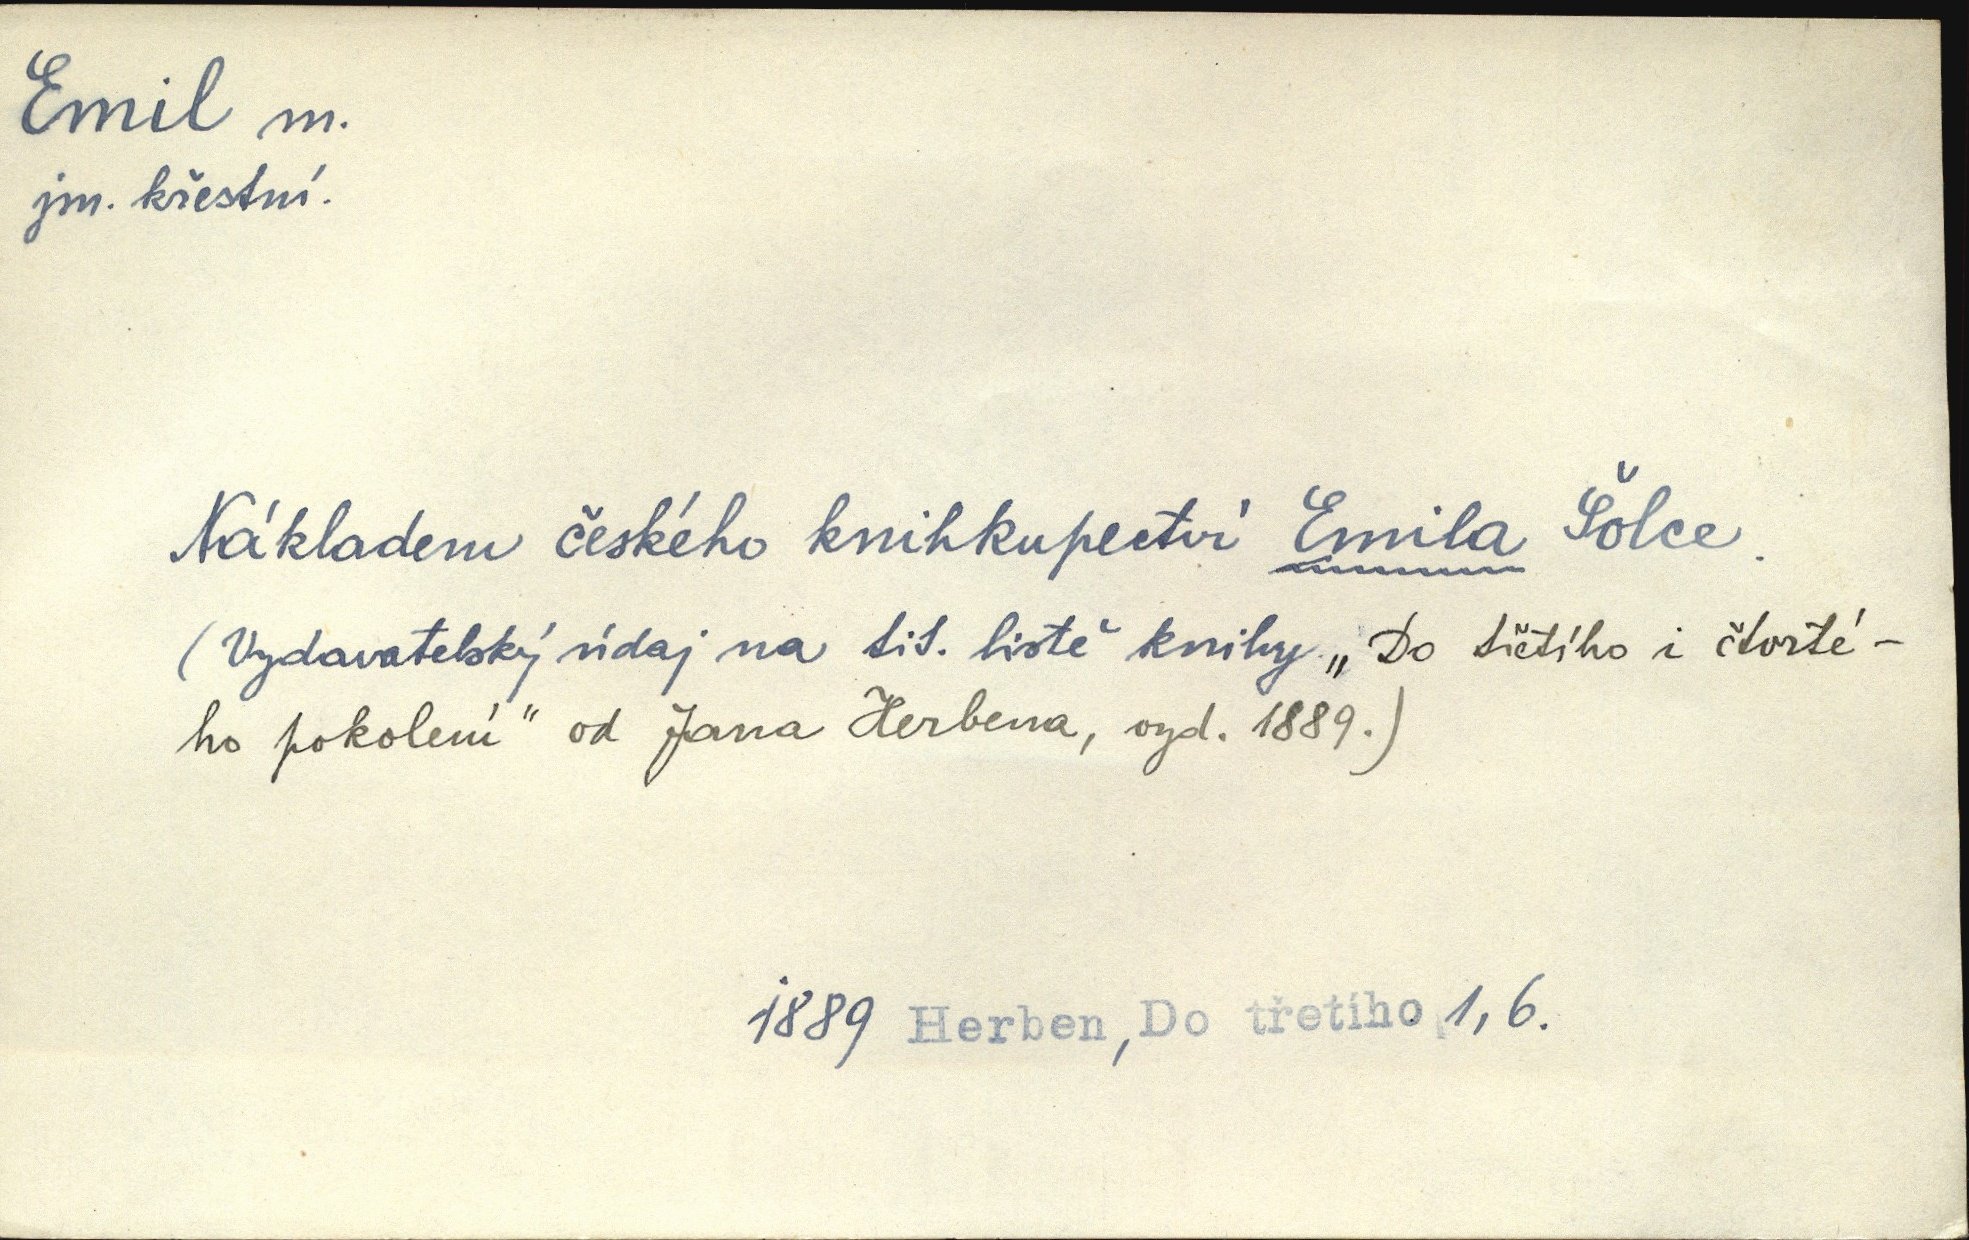 Emil m.
jm. křestní.
Nákladem českého knihkupectví Emila Šolce.
(Vydavatelský údaj na tit. listě knihy „Do třetího i čtvrté-
ho pokolení" od Jana Herbena, vyd. 1889.)
1889 Herben, Do třetího 1, 6.